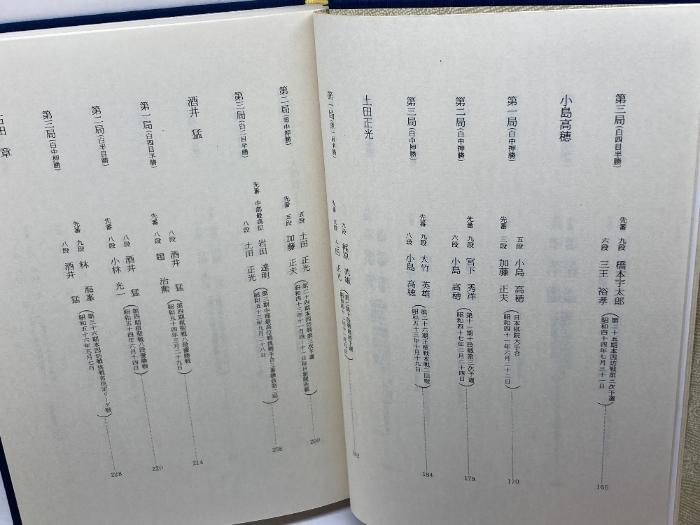 第三局(白四目半勝)
先番 九段 橋本宇太郎
六段 三王 裕孝
(第二十五期本因坊戦第三次予選
昭和四十四年七月三十一日)
168
小島高穂
第一局(白中押勝)
五段 小島 高穂
先番 三段 加藤 正夫
(日本棋院大手合
昭和四十一年六月二十二日)
170
第二局(白中押勝)
先番 九段 宮下 秀洋
六段 小島 高穂
(第十一期十段戦第三次予選
昭和四十七年二月二十四日)
179
第三局(白中押勝)
先番 九段 大竹 英雄
八段 小島 高穂
(第二十六期王座戦本戦二回戦
昭和五十三年十月十九日)
184
土田正光
第一局
九段
192
第二局(黒中押勝)
五段 土田 正光
先番 五段 加藤 正夫
200
第三局(白三目半勝)
先番 中部最高位 岩田 達明
八段 土田 正光
208
酒井 猛
214
第一局(白四目半勝)
八段 酒井 猛
先番 八段 趙 治勲
220
第二局(白半目勝)
八段 酒井 猛
先番 八段 小林 光一
228
第三局(白中押勝)
先番 九段 林 海峯
八段 酒井 猛
石田 章